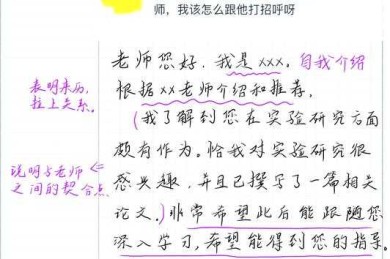 师，我该怎么跟他打招呼呀
老师您好，我是xxx。自我介绍
根据xx老师介绍和推荐，
表明来历，
拉上关系。
(我了解到您在实验研究方面
颇有作为。恰我对实验研究很
说明与老师
之间的契合点
感兴趣，并且已撰写了一篇相关
论文。)非常希望此后能跟随您
深入学习，希望能得到您的指导。